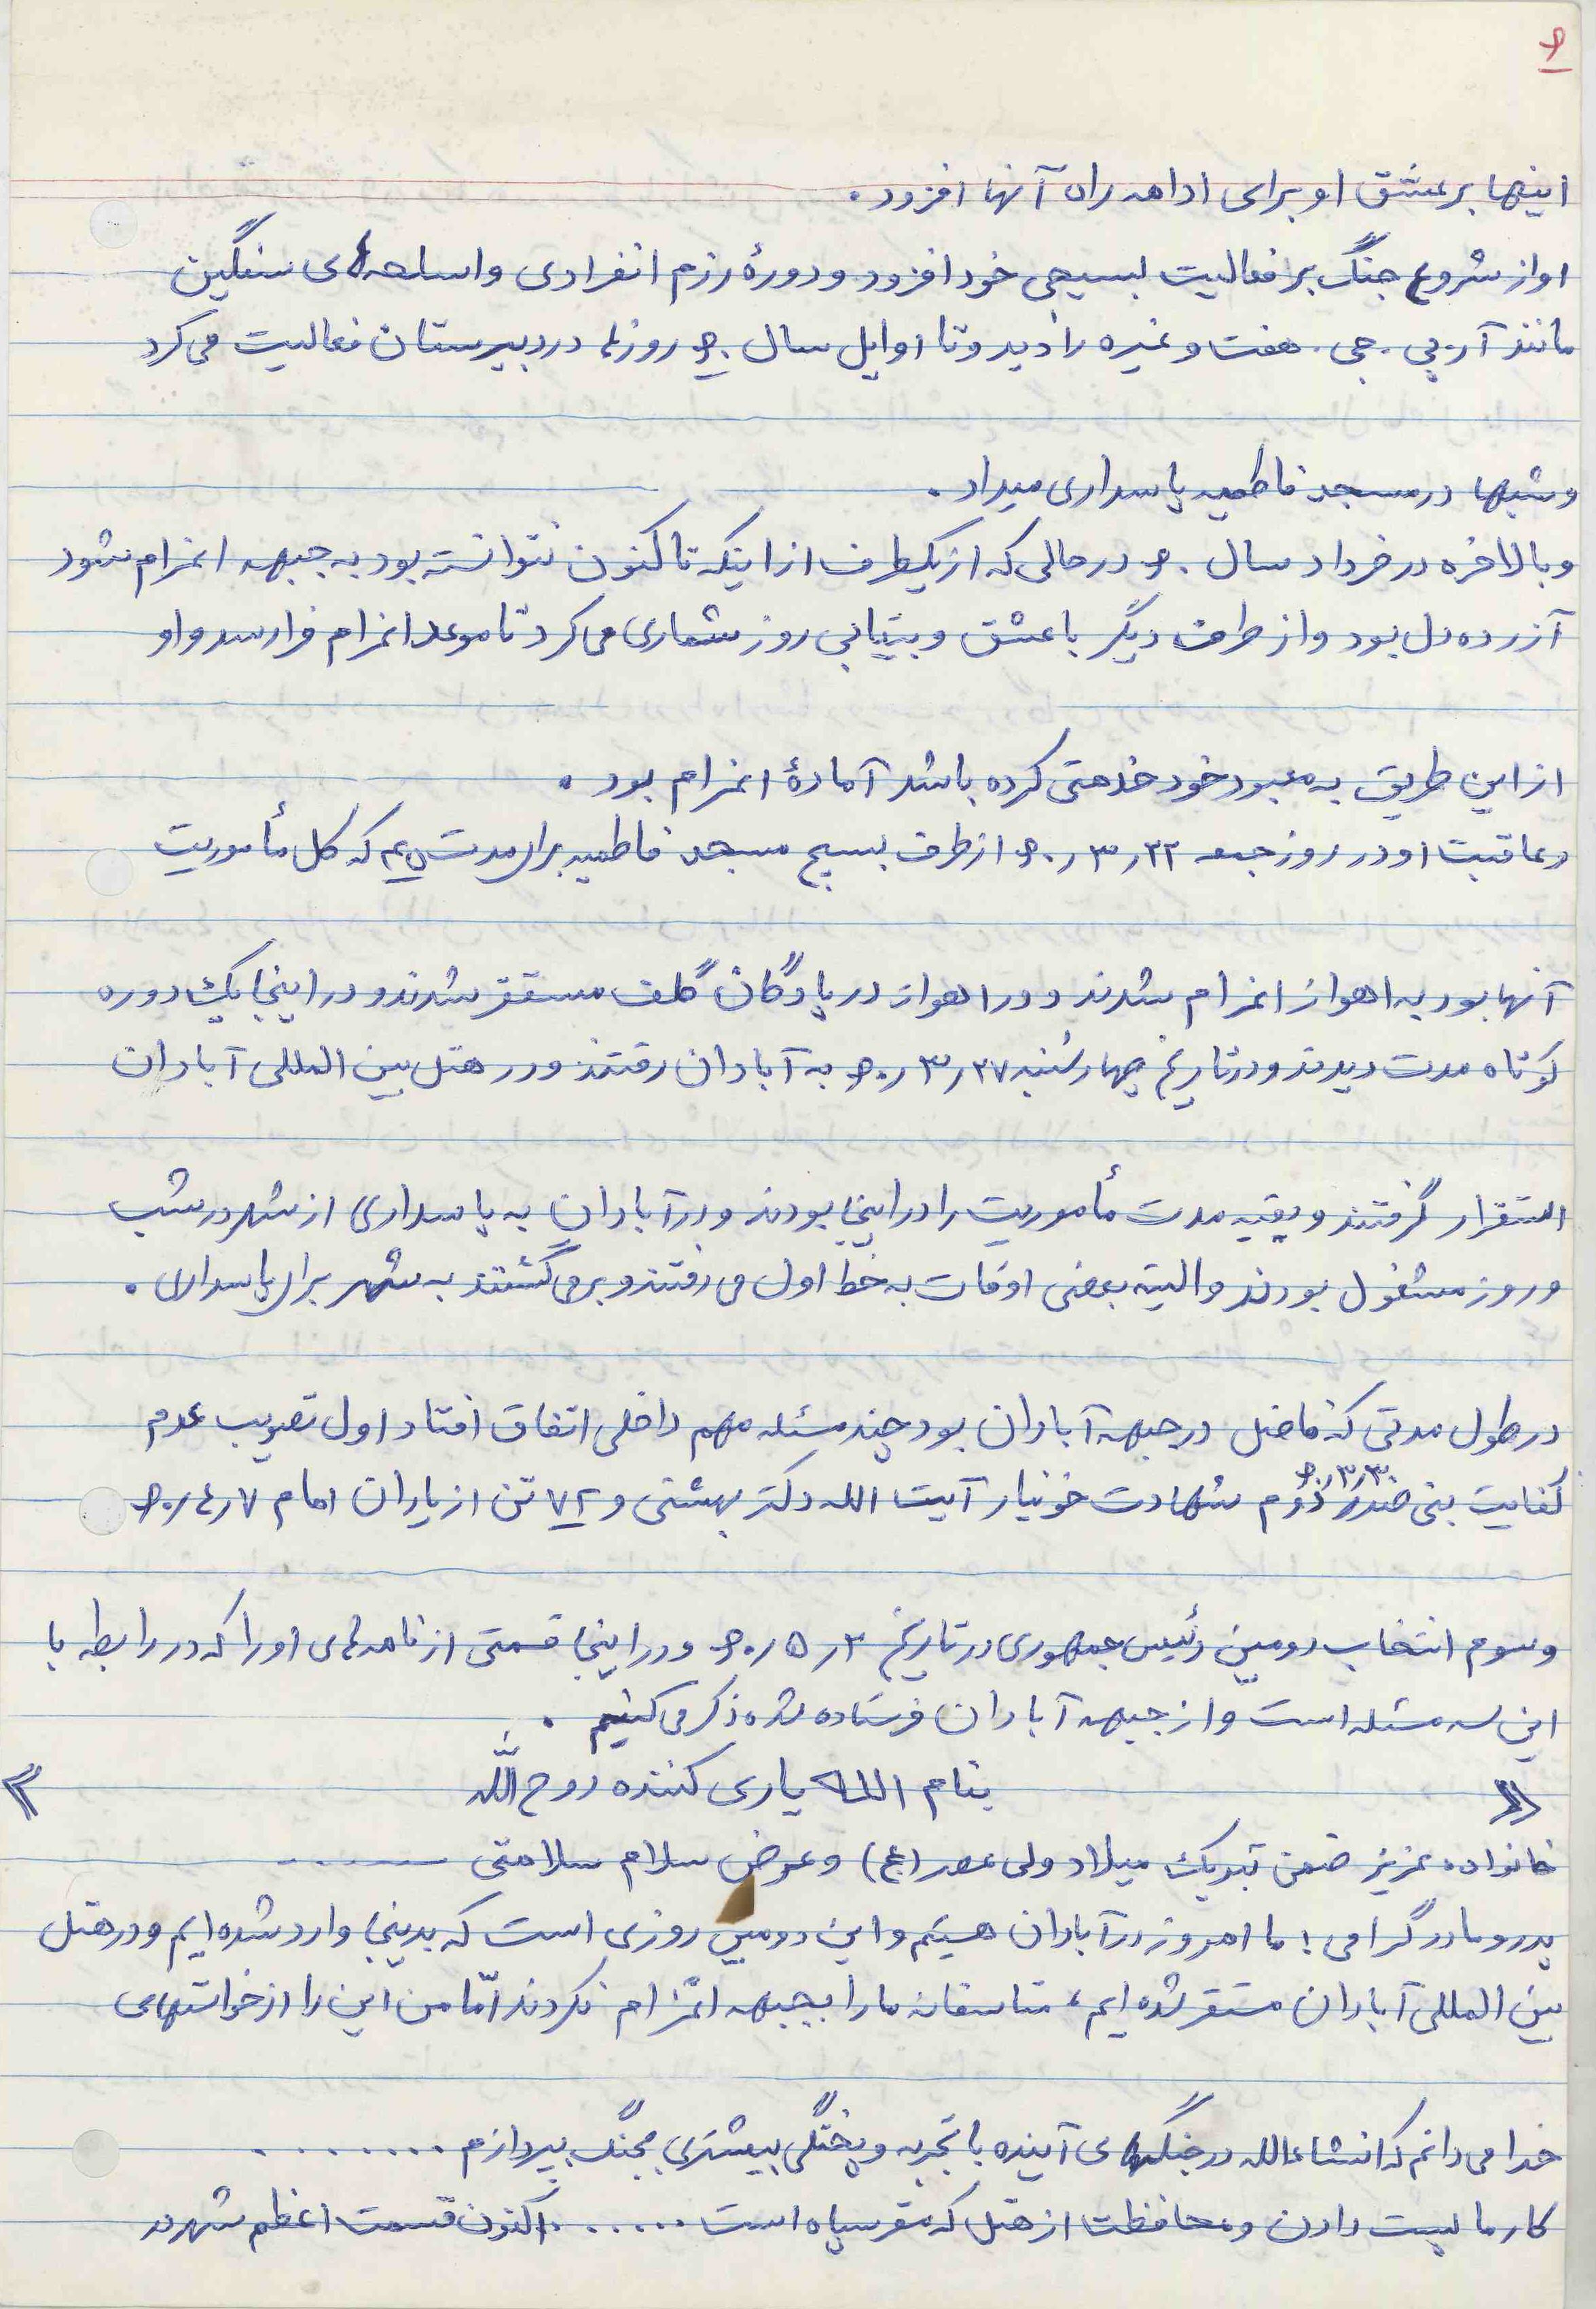 ۶
اینها بر عشق او برای ادامه راه آنها افزود.
او از شروع جنگ بر فعالیت بسیجی خود افزود و دورهٔ رزم انفرادی و اسلحه‌های سنگین
مانند آر.پی.جی.هفت و غیره را دید و تا اوایل سال ۶۰ روزها در دبیرستان فعالیت می‌کرد
و شبها در مسجد فاطمیه پاسداری میداد.
و بالاخره در خرداد سال ۶۰ در حالی که از یکطرف از اینکه تا کنون نتوانسته بود به جبهه اعزام شود
آزرده دل بود و از طرف دیگر با عشق و بیتابی روز شماری می‌کرد تا موعد اعزام فرا رسد و او
از این طریق به معبود خود خدمتی کرده باشد آمادهٔ اعزام بود.
و عاقبت او در روز جمعه ۶۰,۳,۲۲ از طرف بسیج مسجد فاطمیه برای مدت ۴۵ که کل مأموریت
آنها بود به اهواز اعزام شدند و در اهواز در پادگان گلف مستقر شدند و در اینجا یک دوره
کوتاه مدت دیدند و در تاریخ چهارشنبه ۶۰,۳,۲۷ به آبادان رفتند و در هتل بین المللی آبادان
استقرار گرفتند و بقیه مدت مأموریت را در اینجا بودند و در آبادان به پاسداری از شهر در شب
و روز مشغول بودند و البته بعضی اوقات به خط اول می‌رفتند و برمی‌گشتند به شهر برای پاسداری.
در طول مدتی که فاضل در جبهه آبادان بود چند مسئله مهم داخلی اتفاق افتاد اول تصویب عدم
کفایت بنی صدر ۶۰,۳,۳۰ دوم شهادت خونبار آیت الله دکتر بهشتی و ۷۲ تن از یاران امام ۶۰,۴,۷
و سوم انتخاب دومین رئیس جمهوری در تاریخ ۶۰,۵,۲ و در اینجا قسمتی از نامه‌های او را که در رابطه با
این سه مسئله است و از جبهه آبادان فرستاده شده ذکر می‌کنیم.
« بنام الله یاری کننده روح الله »
خانواده عزیز ضمن تبریک میلاد ولی عصر (عج) و عرض سلام سلامتی ......
پدر و مادر گرامی! ما امروز در آبادان هستیم و این دومین روزی است که بدینجا وارد شده‌ایم و در هتل
بین المللی آبادان مستقر شده‌ایم، متاسفانه ما را بجبهه اعزام نکردند امّا من این را از خواستهای
خدا می دانم که انشاءالله در جنگهای آینده با تجربه و پختگی بیشتری بجنگ بپردازم ........
کار ما پست دادن و محافظت از هتل که مقر سپاه است ...... اکنون قسمت اعظم شهر در